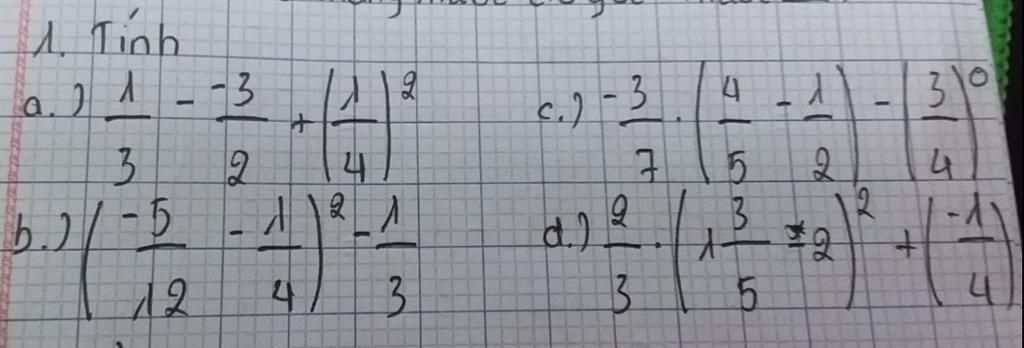 1. Tính
a.) 1/3 - -3/2 + (1/4)²
c.) -3/7 . (4/5 - 1/2) - (3/4)⁰
b.) (-5/12 - 1/4)² - 1/3
d.) 2/3 . (1 3/5 - 2)² + (-1/4)